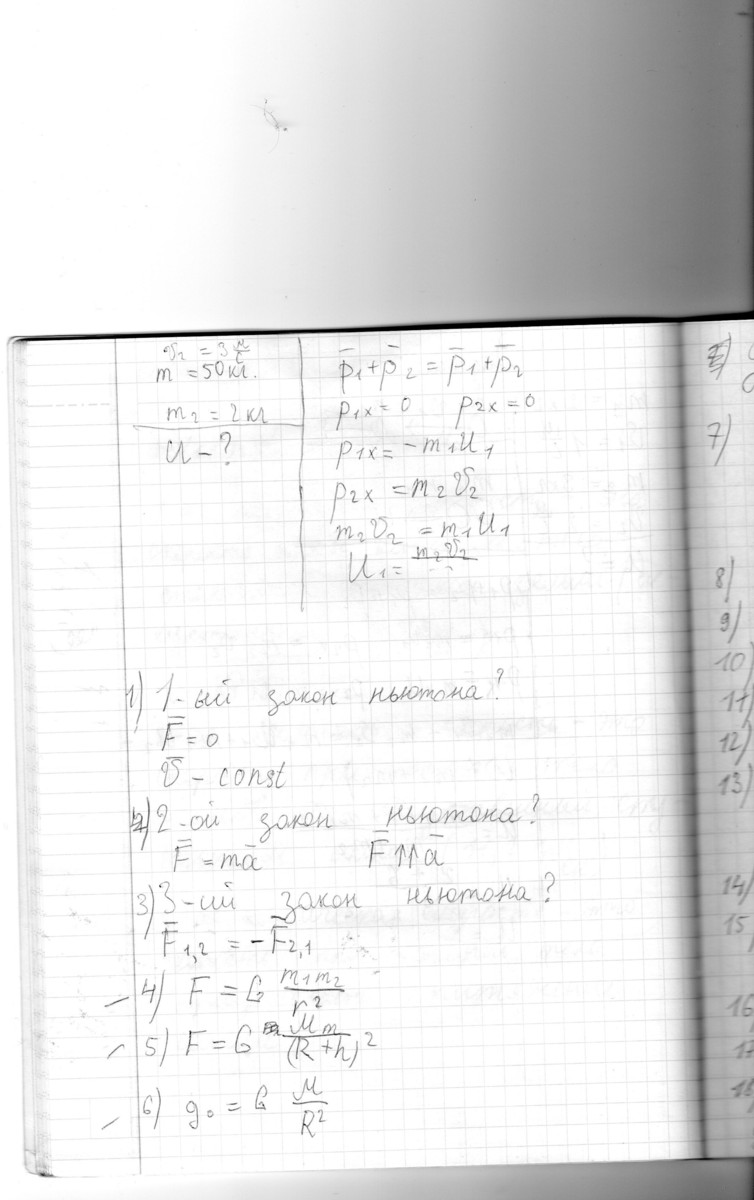 v̅₂ = 3 м/с
m = 50 кг.
m₂ = 2 кг
U – ?
p̅₁ + p̅₂ = p̅₁ + p̅₂
p₁x = 0 p₂x = 0
p₁x = –m₁U₁
p₂x = m₂v₂
m₂v₂ = m₁U₁
U₁ = m₂v₂
1) 1-ый закон ньютона?
F̅ = 0
v̅ – const
2) 2-ой закон ньютона?
F̅ = ma̅ F̅ ↑↑ a̅
3) 3-ий закон ньютона?
F̅₁,₂ = –F̅₂,₁
4) F = G m₁m₂/r²
5) F = G Mm/(R+h)²
6) g₀ = G M/R²
7)
8)
9)
10)
11)
12)
13)
14)
15)
16
17